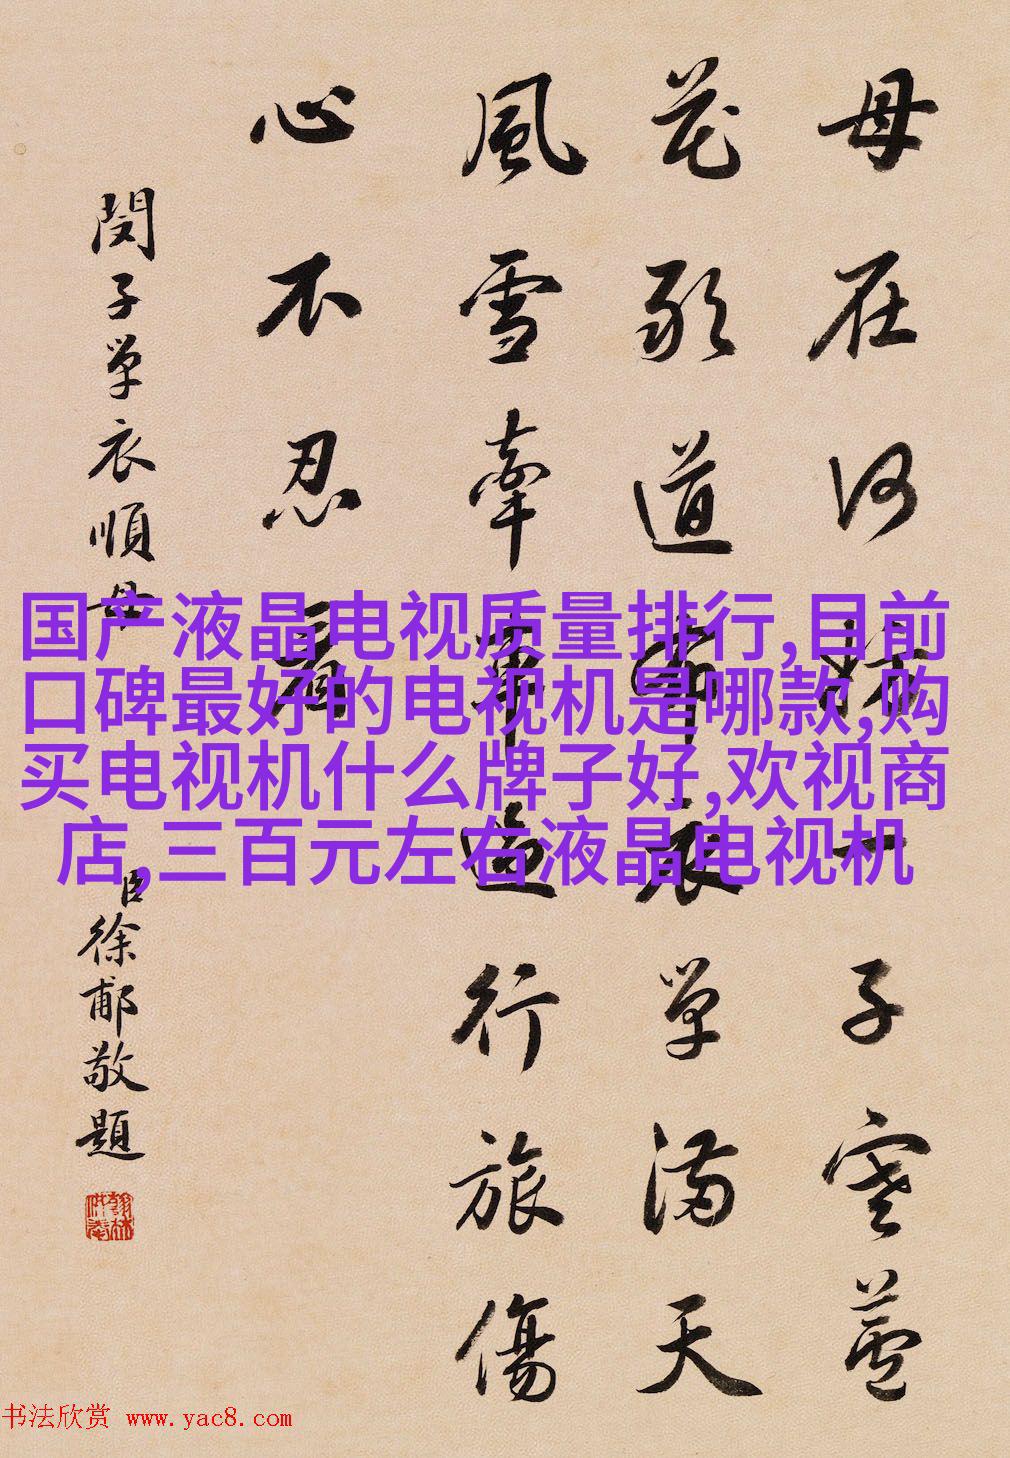 母在何一子寒蘆
花歌道衣單滿天
風雪牽車行旅傷
心不忍看
閔子單衣順母
臣徐郙敬題
国产液晶电视质量排行,目前
口碑最好的电视机是哪款,购
买电视机什么牌子好,欢视商
店,三百元左右液晶电视机
书法欣赏 www.yac8.com